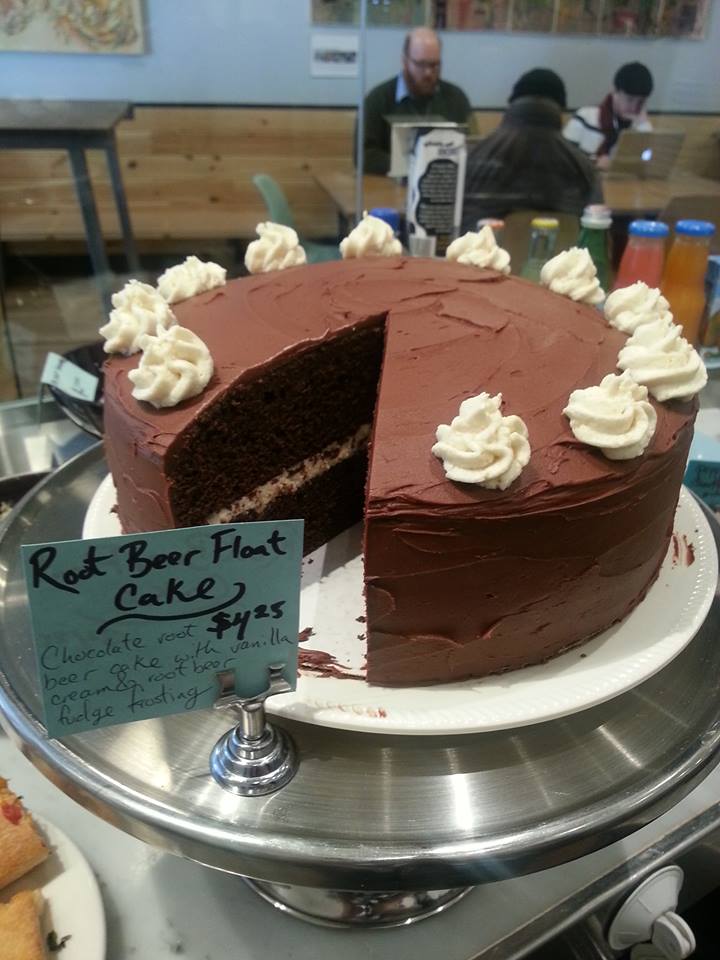 Root Beer Float
Cake
$4.25
Chocolate root
beer cake with vanilla
cream & root beer
fudge frosting